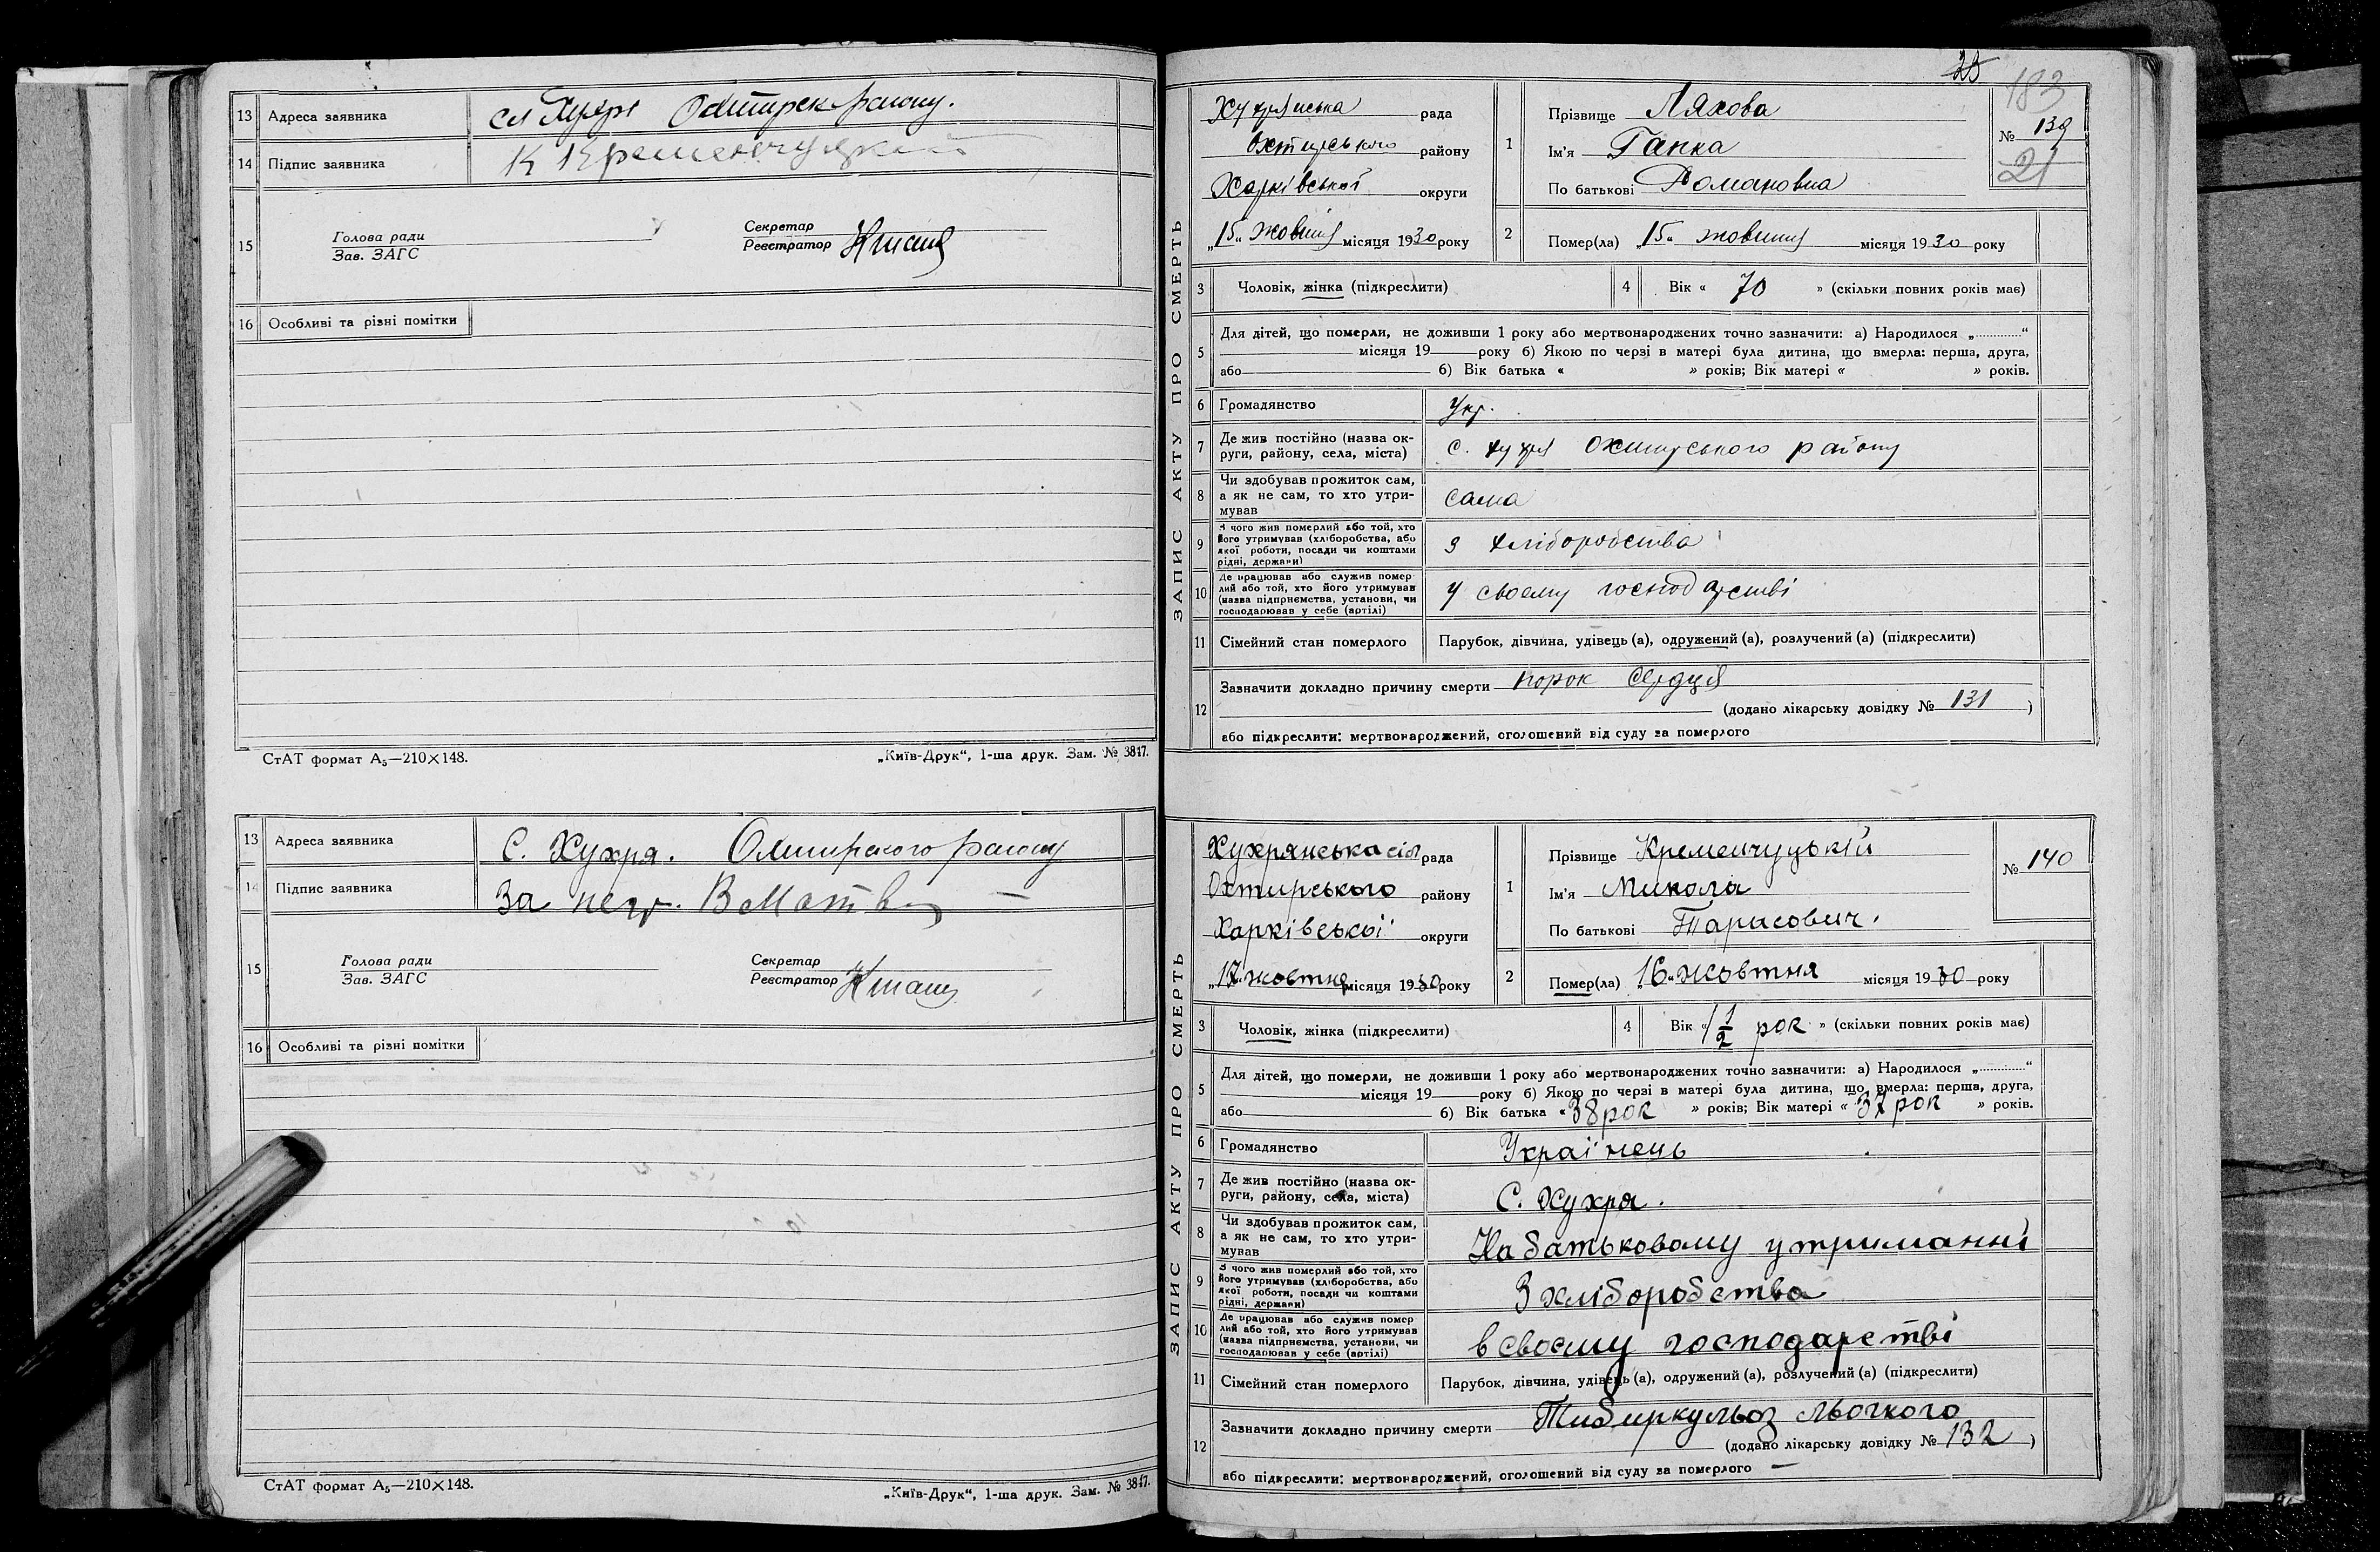 13 Адреса заявника сл Хухря Охтирск району.
14 Підпис заявника К Кременчуцкий
15 Голова ради
Зав. ЗАГС
Секретар
Реєстратор
16 Особливі та різні помітки
СтАТ формат А₅—210×148.
„Київ-Друк“, 1-ша друк. Зам. № 3847.
13 Адреса заявника С. Хухря. Охтирского району
14 Підпис заявника За негр.
15 Голова ради
Зав. ЗАГС
Секретар
Реєстратор
16 Особливі та різні помітки
СтАТ формат А₅—210×148.
„Київ-Друк“, 1-ша друк. Зам. № 3847.
25
183
ЗАПИС АКТУ ПРО СМЕРТЬ
Хухрянська рада
Охтирського району
Харківської округи
„15“ жовтня місяця 1930 року
1 Прізвище Ляхова
Ім'я Ганна
По батькові Романовна
№ 139
21
2 Помер(ла) „15“ жовтня місяця 1930 року
3 Чоловік, жінка (підкреслити)
4 Вік « 70 » (скільки повних років має)
5 Для дітей, що померли, не доживши 1 року або мертвонароджених точно зазначити: а) Народилося „............“
місяця 19 року б) Якою по черзі в матері була дитина, що вмерла: перша, друга,
або б) Вік батька « » років; Вік матері « » років.
6 Громадянство Укр.
7 Де жив постійно (назва ок-
руги, району, села, міста) с. Хухря Охтирського району
8 Чи здобував прожиток сам,
а як не сам, то хто утри-
мував сама
9 З чого жив померлий або той, хто
його утримував (хліборобства, або
якої роботи, посади чи коштами
рідні, держави) з хліборобства
10 Де працював або служив помер-
лий або той, хто його утримував
(назва підприємства, установи, чи
господарював у себе (артілі) у своєму господарстві
11 Сімейний стан померлого Парубок, дівчина, удівець (а), одружений (а), розлучений (а) (підкреслити)
12 Зазначити докладно причину смерти порок сердця
(додано лікарську довідку № 131 )
або підкреслити: мертвонароджений, оголошений від суду за померлого
ЗАПИС АКТУ ПРО СМЕРТЬ
Хухрянська сіл рада
Охтирського району
Харківської округи
„17“ жовтня місяця 1930 року
1 Прізвище Кременчуцькій
Ім'я Микола
По батькові Тарасович.
№ 140
2 Помер(ла) „16“ жовтня місяця 1930 року
3 Чоловік, жінка (підкреслити)
4 Вік « 1 1/2 рок » (скільки повних років має)
5 Для дітей, що померли, не доживши 1 року або мертвонароджених точно зазначити: а) Народилося „............“
місяця 19 року б) Якою по черзі в матері була дитина, що вмерла: перша, друга,
або б) Вік батька « 38 рок » років; Вік матері « 37 рок » років.
6 Громадянство Українець
7 Де жив постійно (назва ок-
руги, району, села, міста) С. Хухря.
8 Чи здобував прожиток сам,
а як не сам, то хто утри-
мував На батьковому утриманні
9 З чого жив померлий або той, хто
його утримував (хліборобства, або
якої роботи, посади чи коштами
рідні, держави) З хліборобства
10 Де працював або служив помер-
лий або той, хто його утримував
(назва підприємства, установи, чи
господарював у себе (артілі) в своєму господарстві
11 Сімейний стан померлого Парубок, дівчина, удівець (а), одружений (а), розлучений (а) (підкреслити)
12 Зазначити докладно причину смерти Тибиркульоз льогкого
(додано лікарську довідку № 132 )
або підкреслити: мертвонароджений, оголошений від суду за померлого —